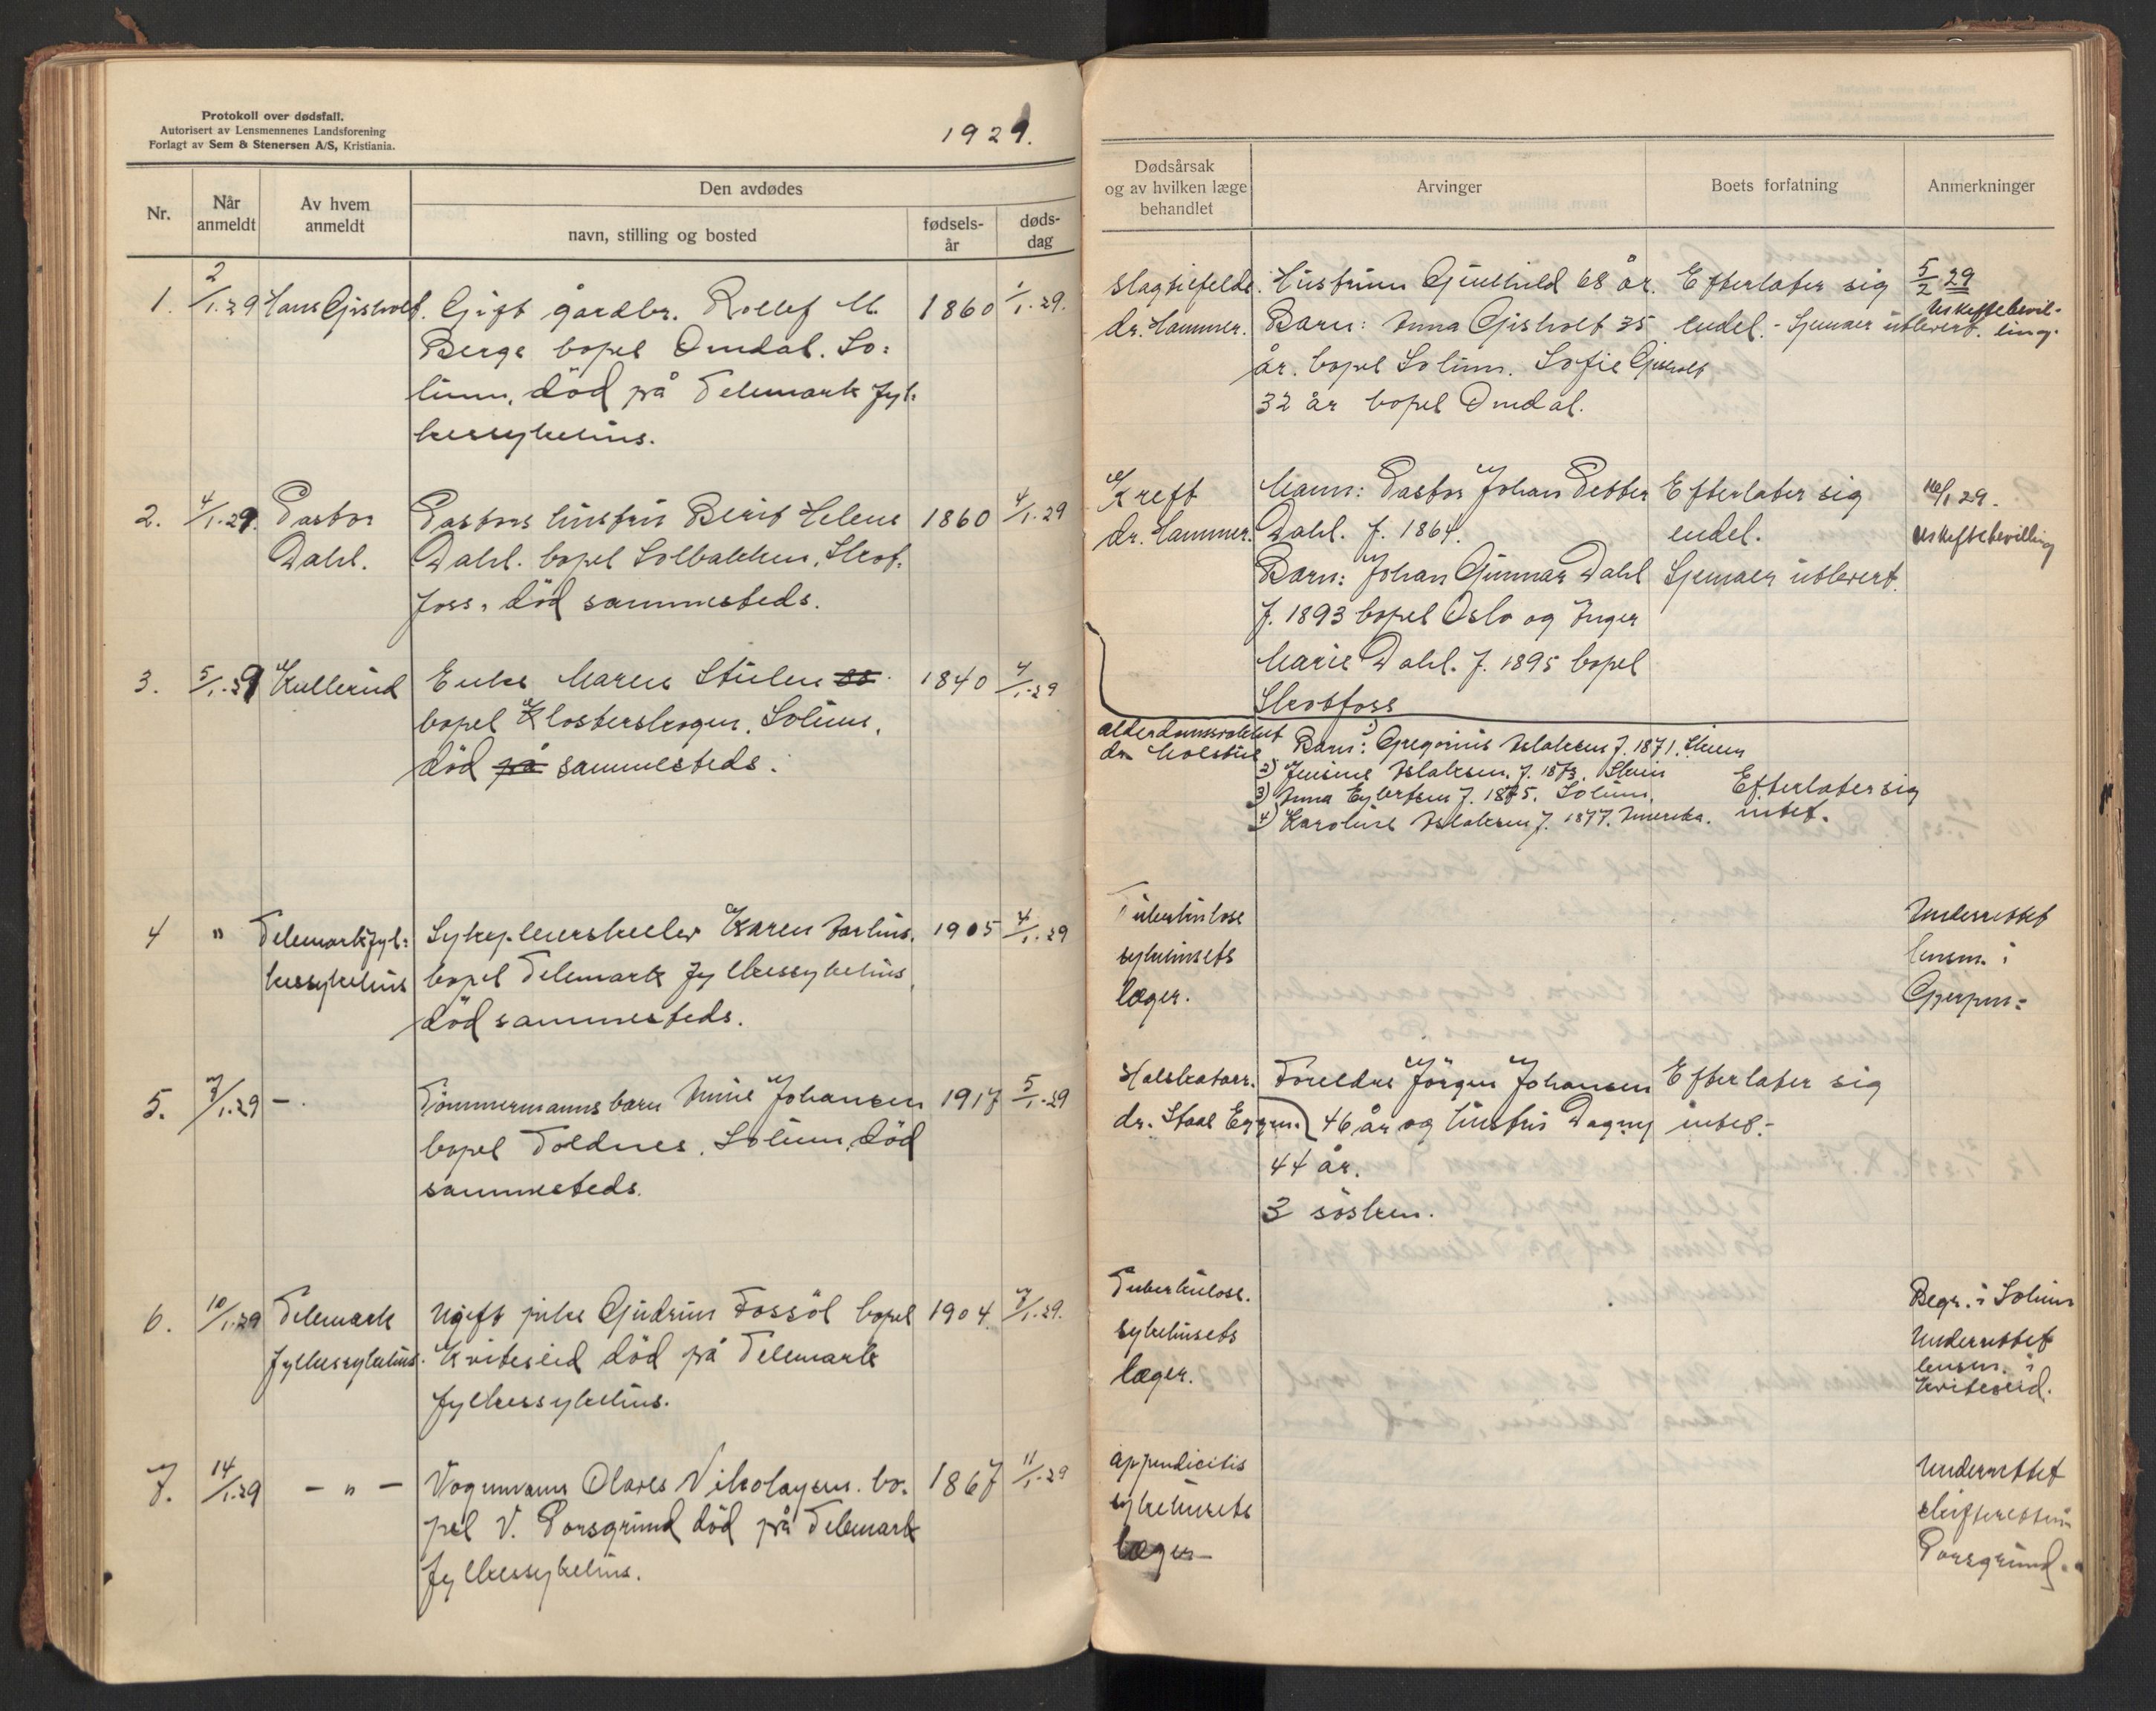 Protokoll over dødsfall.
Autorisert av Lensmennenes Landsforening
Forlagt av Sem & Stenersen A/S, Kristiania.
1929.
Nr.
Når
anmeldt
Av hvem
anmeldt
Den avdødes
navn, stilling og bosted
fødsels-
år
døds-
dag
1. 2/1.29 Hans Gisholt. Gift gårdbr. Rollef M. 1860 1/1.29.
Berge bopel Omdal. So=
lum, död på Telemark fyl=
kessykehus.
2. 4/1.29. Pastor Pastors hustru Berit Helene 1860 4/1.29
Dahl. Dahl. bopel Solbakken, Skot=
foss, död sammesteds.
3. 5/1.29 Kullerud Enke Maren Stulen 1840 4/1.29
bopel Klosterskogen, Solum,
död på sammesteds.
4 " Telemark fyl= Sykepleierskeelev Karen Aarhus. 1905 4/1.29
kessykehus bopel Telemark fylkessykehus,
död sammesteds.
5. 7/1.29 — . Tömmermanns barn Anne Johansen 1917 5/1.29
bopel Toldnes, Solum, död
sammesteds.
6. 10/1.29 Telemark Ugift pike Gudrun Fossöl bopel 1904. 7/1.29.
fylkessykehus. Kviteseid död på Telemark
fylkessykehus.
7. 14/1.29 — " — Vognmann Olaves Nikolaysen. bo= 1867 11/1.29
pel V. Porsgrund död på Telemark
fylkessykehus.
Dødsårsak
og av hvilken læge
behandlet
Arvinger
Boets forfatning
Anmerkninger
slagtilfelde. Hustrum Gunhild 68 år. Efterlater sig 5/2 29
dr. Hammer. Barn: Anna Gisholt 35 endel. - Skjemaer utlevert. Uskiftebevil-
ling.
år. bopel Solum. Sofie Gisholt
32 år bopel Omdal.
Kreft Mann: Pastor Johan Petter Efterlater sig 16/1 29.
dr. Hammer. Dahl. f. 1864. endel. Uskiftebevilling
Barn: Johan Gunnar Dahl Skjemaer utlevert.
f. 1893 bopel Oslo og Inger
Marie Dahl. f. 1895 bopel
Skotfoss
alderdomssvakhet 1) Barn: Gregorius Aslaksen f. 1871. Skien
dr. Holstad
2) Jensine Aslaksen. f. 1873. Skien
3) Anna Eylertsen f. 1875. Solum. Efterlater sig
4) Karoline Aslaksen f. 1877. Amerika. intet.
Tuberkulose Underrettet
sykehusets lensm. i
læger. Gjerpen=
Halskatarr. Foreldre Jörgen Johansen Efterlater sig
dr. Staal 46 år og hustru Dagny intet.-
44 år.
3 sösken.
Tuberkulose. Begr. i Solum
sykehusets Underrettet
læger. lensm. i
Kviteseid.
appendicitis Underrettet
sykehusets skifteretten i
læger— Porsgrund.